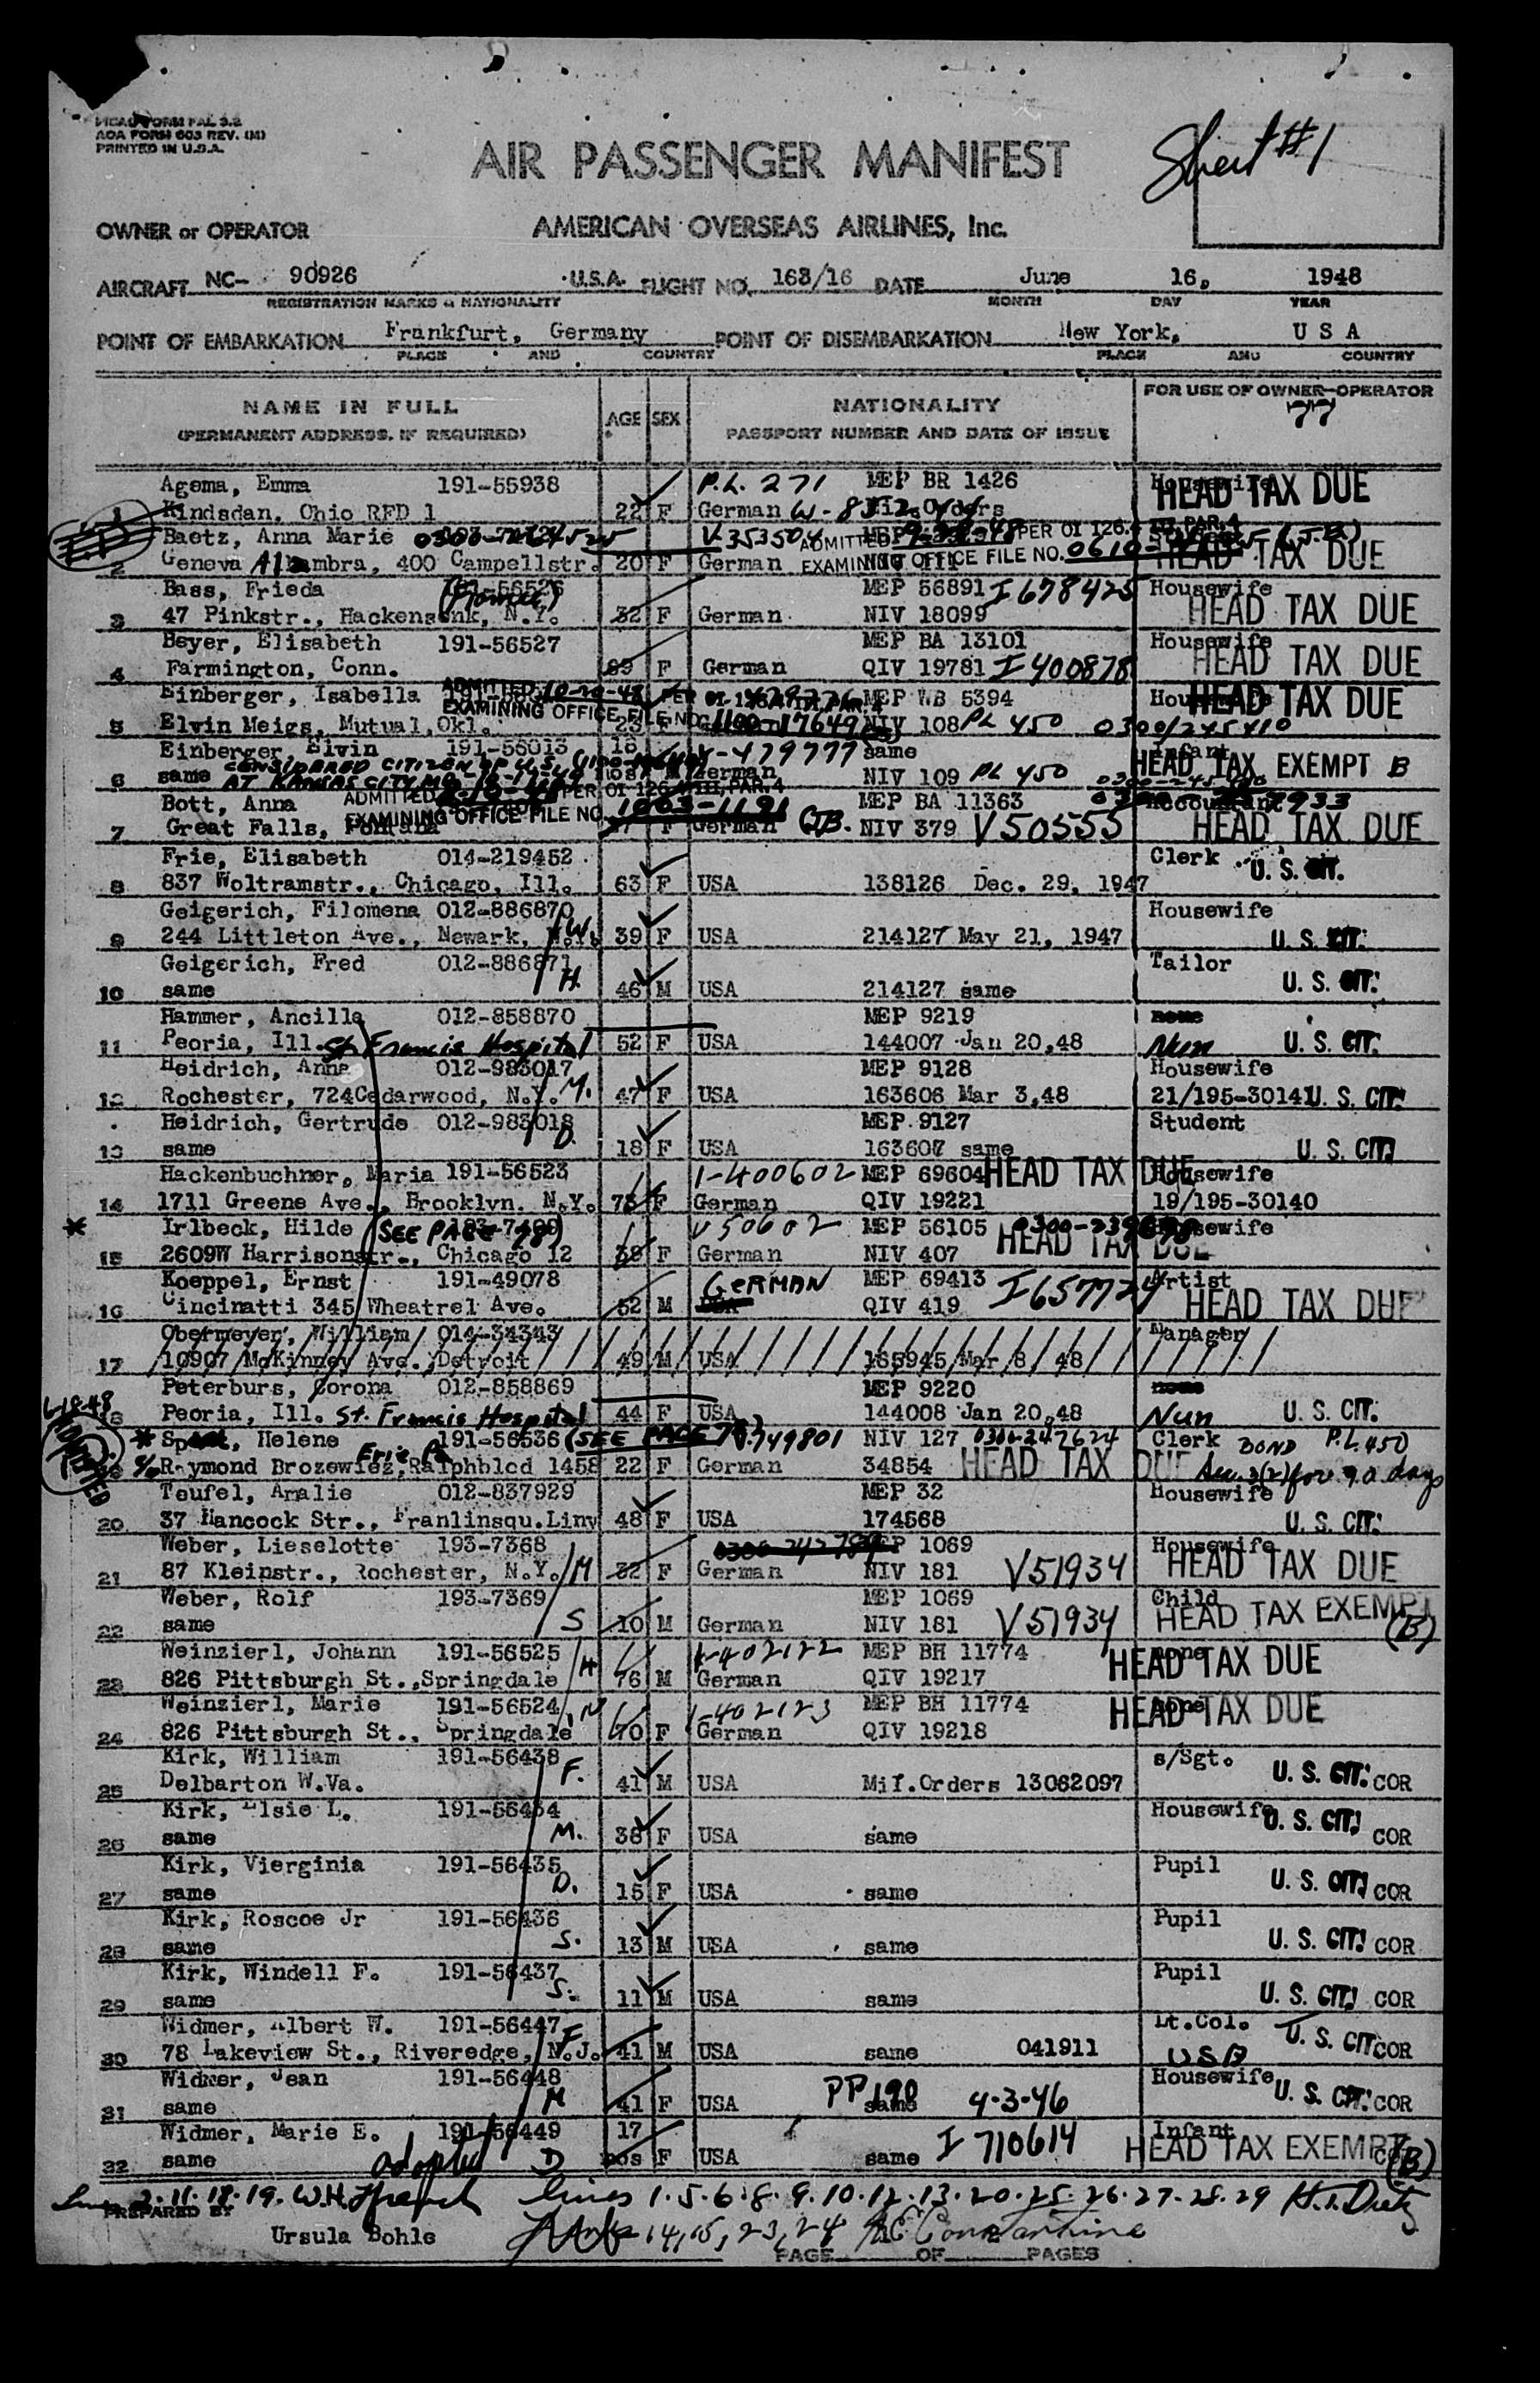 AOA FORM 603 REV. (M)
PRINTED IN U.S.A.
Sheet #1
AIR PASSENGER MANIFEST
OWNER or OPERATOR AMERICAN OVERSEAS AIRLINES, Inc.
AIRCRAFT NC- 90926 U.S.A. FLIGHT NO. 163/16 DATE June 16, 1948
REGISTRATION MARKS & NATIONALITY MONTH DAY YEAR
POINT OF EMBARKATION Frankfurt, Germany POINT OF DISEMBARKATION New York, U S A
PLACE AND COUNTRY PLACE AND COUNTRY
NAME IN FULL AGE SEX NATIONALITY FOR USE OF OWNER-OPERATOR
(PERMANENT ADDRESS, IF REQUIRED) PASSPORT NUMBER AND DATE OF ISSUE 77
Agema, Emma 191-55938 P.L. 271 MEP BR 1426 Housewife
1 Kindsdan, Ohio RFD 1 22 F German Mil.Orders HEAD TAX DUE
Baetz, Anna Marie ADMITTED PER OI 126. PAR. 4
2 Geneva Alhambra, 400 Campellstr. 20 F German EXAMINING OFFICE FILE NO. HEAD TAX DUE
Bass, Frieda MEP 56891 I 678425 Housewife
3 47 Pinkstr., Hackensenk, N.Y. 32 F German NIV 18099 HEAD TAX DUE
Beyer, Elisabeth 191-56527 MEP BA 13101 Housewife
4 Farmington, Conn. 69 F German QIV 19781 I 400878 HEAD TAX DUE
Einberger, Isabella ADMITTED 10-20-48 PER OI 126 PAR. 4 MEP WB 5394 HEAD TAX DUE
5 Elvin Meigs, Mutual, Okl. EXAMINING OFFICE FILE NO. 1100-17649 23 F NIV 108 PL 450 0300/245410
Einberger, Elvin 191-55013 18 479777 same Infant
6 same CONSIDERED CITIZEN OF U.S. AT KANSAS CITY, MO. mos M German NIV 109 PL 450 HEAD TAX EXEMPT B
Bott, Anna ADMITTED PER OI 126 PAR. 4 MEP BA 11363 Accountant
7 Great Falls, EXAMINING OFFICE FILE NO. 1003-1191 F German NIV 379 V50555 HEAD TAX DUE
Frie, Elisabeth 014-219452 Clerk U. S. CIT.
8 837 Woltramstr., Chicago, Ill. 63 F USA 138126 Dec. 29, 1947
Geigerich, Filomena 012-886870 Housewife
9 244 Littleton Ave., Newark, N.Y. W. 39 F USA 214127 May 21, 1947 U. S. CIT.
Geigerich, Fred 012-886871 Tailor
10 same H. 46 M USA 214127 same U. S. CIT.
Hammer, Ancilla 012-858870 MEP 9219 none
11 Peoria, Ill. St. Francis Hospital 52 F USA 144007 Jan 20,48 Nun U. S. CIT.
Heidrich, Anna 012-983017 MEP 9128 Housewife
12 Rochester, 724Cedarwood, N.Y. M. 47 F USA 163606 Mar 3,48 21/195-30141 U. S. CIT.
Heidrich, Gertrude 012-983018 MEP 9127 Student
13 same D. 18 F USA 163607 same U. S. CIT.
Hackenbuchner, Maria 191-56523 1-400602 MEP 69604 HEAD TAX DUE Housewife
14 1711 Greene Ave., Brooklyn. N.Y. 73 F German QIV 19221 19/195-30140
* Irlbeck, Hilde (SEE PAGE 78) V50602 MEP 56105 Housewife
15 2609W Harrisonstr., Chicago 12 38 F German NIV 407 HEAD TAX DUE
Koeppel, Ernst 191-49078 GERMAN MEP 69413 I 657724 Artist
16 Cincinatti 345 Wheatrel Ave. 52 M USA QIV 419 HEAD TAX DUE
Obermeyer, William 014-34343 Manager
17 10907 McKinney Ave., Detroit 49 M USA 165945 Mar 8 48
Peterburs, Corona 012-858869 MEP 9220 none
18 Peoria, Ill. St. Francis Hospital 44 F USA 144008 Jan 20,48 Nun U. S. CIT.
ADMITTED * Helene 191-56536 (SEE PAGE 78) V.749801 NIV 127 0300-247624 Clerk BOND P.L. 450
c/o Raymond Brozewiez, Ralphblcd 1458 Erie Pa 22 F German 34854 HEAD TAX DUE Sec. 3(2) for 90 days
Teufel, Amalie 012-837929 MEP 32 Housewife
20 37 Hancock Str., Franlinsqu.Liny 48 F USA 174568 U. S. CIT.
Weber, Lieselotte 193-7368 MEP 1069 Housewife
21 87 Kleinstr., Rochester, N.Y. M 32 F German NIV 181 V51934 HEAD TAX DUE
Weber, Rolf 193-7369 MEP 1069 Child
22 same S 10 M German NIV 181 V51934 HEAD TAX EXEMPT (B)
Weinzierl, Johann 191-56525 1-402122 MEP BH 11774 none
23 826 Pittsburgh St.,Springdale H 76 M German QIV 19217 HEAD TAX DUE
Weinzierl, Marie 191-56524 1-402123 MEP BH 11774 none
24 826 Pittsburgh St., Springdale W 70 F German QIV 19218 HEAD TAX DUE
Kirk, William 191-56438 s/Sgt.
25 Delbarton W.Va. F. 41 M USA Mil.Orders 13062097 U. S. CIT. COR
Kirk, Elsie L. 191-56434 Housewife U. S. CIT.
26 same M. 38 F USA same COR
Kirk, Vierginia 191-56435 Pupil
27 same D. 15 F USA same U. S. CIT. COR
Kirk, Roscoe Jr 191-56436 Pupil
28 same S. 13 M USA same U. S. CIT. COR
Kirk, Windell F. 191-56437 Pupil
29 same S. 11 M USA same U. S. CIT. COR
Widmer, Albert W. 191-56447 Lt.Col.
30 78 Lakeview St., Riveredge, N.J. F 41 M USA same 041911 U. S. CIT COR
Widmer, Jean 191-56448 Housewife
31 same M 41 F USA PP 190 same 4-3-46 U. S. CIT. COR
Widmer, Marie E. 191-56449 17 Infant
32 same adopted D mos F USA same I 710614 HEAD TAX EXEMPT (B)
Lines 2.11.18.19. W.H. French lines 1.5.6.8.9.10.12.13.20.25.26.27.28.29 H.T. Dietz
PREPARED BY Ursula Bohle 14,15,23,24 Constantine
PAGE OF PAGES